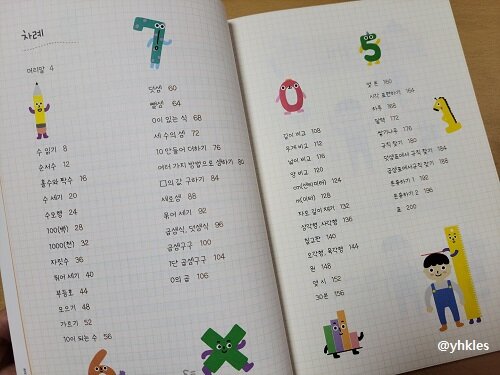 차례
머리말 4
수 읽기 8
순서수 12
홀수와 짝수 16
수 세기 20
수모형 24
100(백) 28
1000(천) 32
자릿수 36
뛰어 세기 40
부등호 44
모으기 48
가르기 52
10이 되는 수 56
덧셈 60
뺄셈 64
0이 있는 식 68
세 수의 셈 72
10 만들어 더하기 76
여러 가지 방법으로 셈하기 80
□의 값 구하기 84
세로셈 88
묶어 세기 92
곱셈식, 덧셈식 96
곱셈구구 100
1단 곱셈구구 104
0의 곱 106
길이 비교 108
무게 비교 112
넓이 비교 116
양 비교 120
cm(센티미터) 124
m(미터) 128
자로 길이 재기 132
삼각형, 사각형 136
칠교판 140
오각형, 육각형 144
원 148
몇 시 152
30분 156
몇 분 160
시각 표현하기 164
하루 168
달력 172
쌓기나무 176
규칙 찾기 180
덧셈표에서 규칙 찾기 184
곱셈표에서 규칙 찾기 188
분류하기 1 192
분류하기 2 196
표 200
7
5
0
6
@yhkles